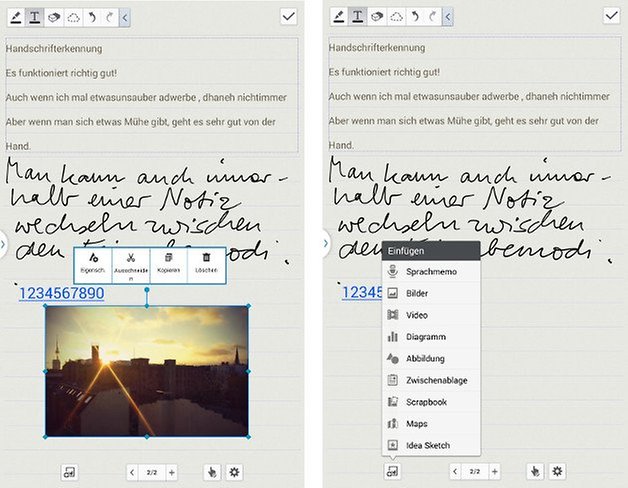 Handschrifterkennung
Es funktioniert richtig gut!
Auch wenn ich mal etwasunsauber adwerbe , dhaneh nichtimmer
Aber wenn man sich etwas Mühe gibt, geht es sehr gut von der
Hand.
Man kann auch inner-
halb einer Notiz
wechseln zwischen
den bemodi.
Eigensch.
Ausschneide
n
Kopieren
Löschen
1234567890
2/2
Handschrifterkennung
Es funktioniert richtig gut!
Auch wenn ich mal etwasunsauber adwerbe , dhaneh nichtimmer
Aber wenn man sich etwas Mühe gibt, geht es sehr gut von der
Hand.
Man kann auch inner-
halb einer Notiz
wechseln zwischen
den bemodi.
12345
Einfügen
Sprachmemo
Bilder
Video
Diagramm
Abbildung
Zwischenablage
Scrapbook
Maps
Idea Sketch
2/2